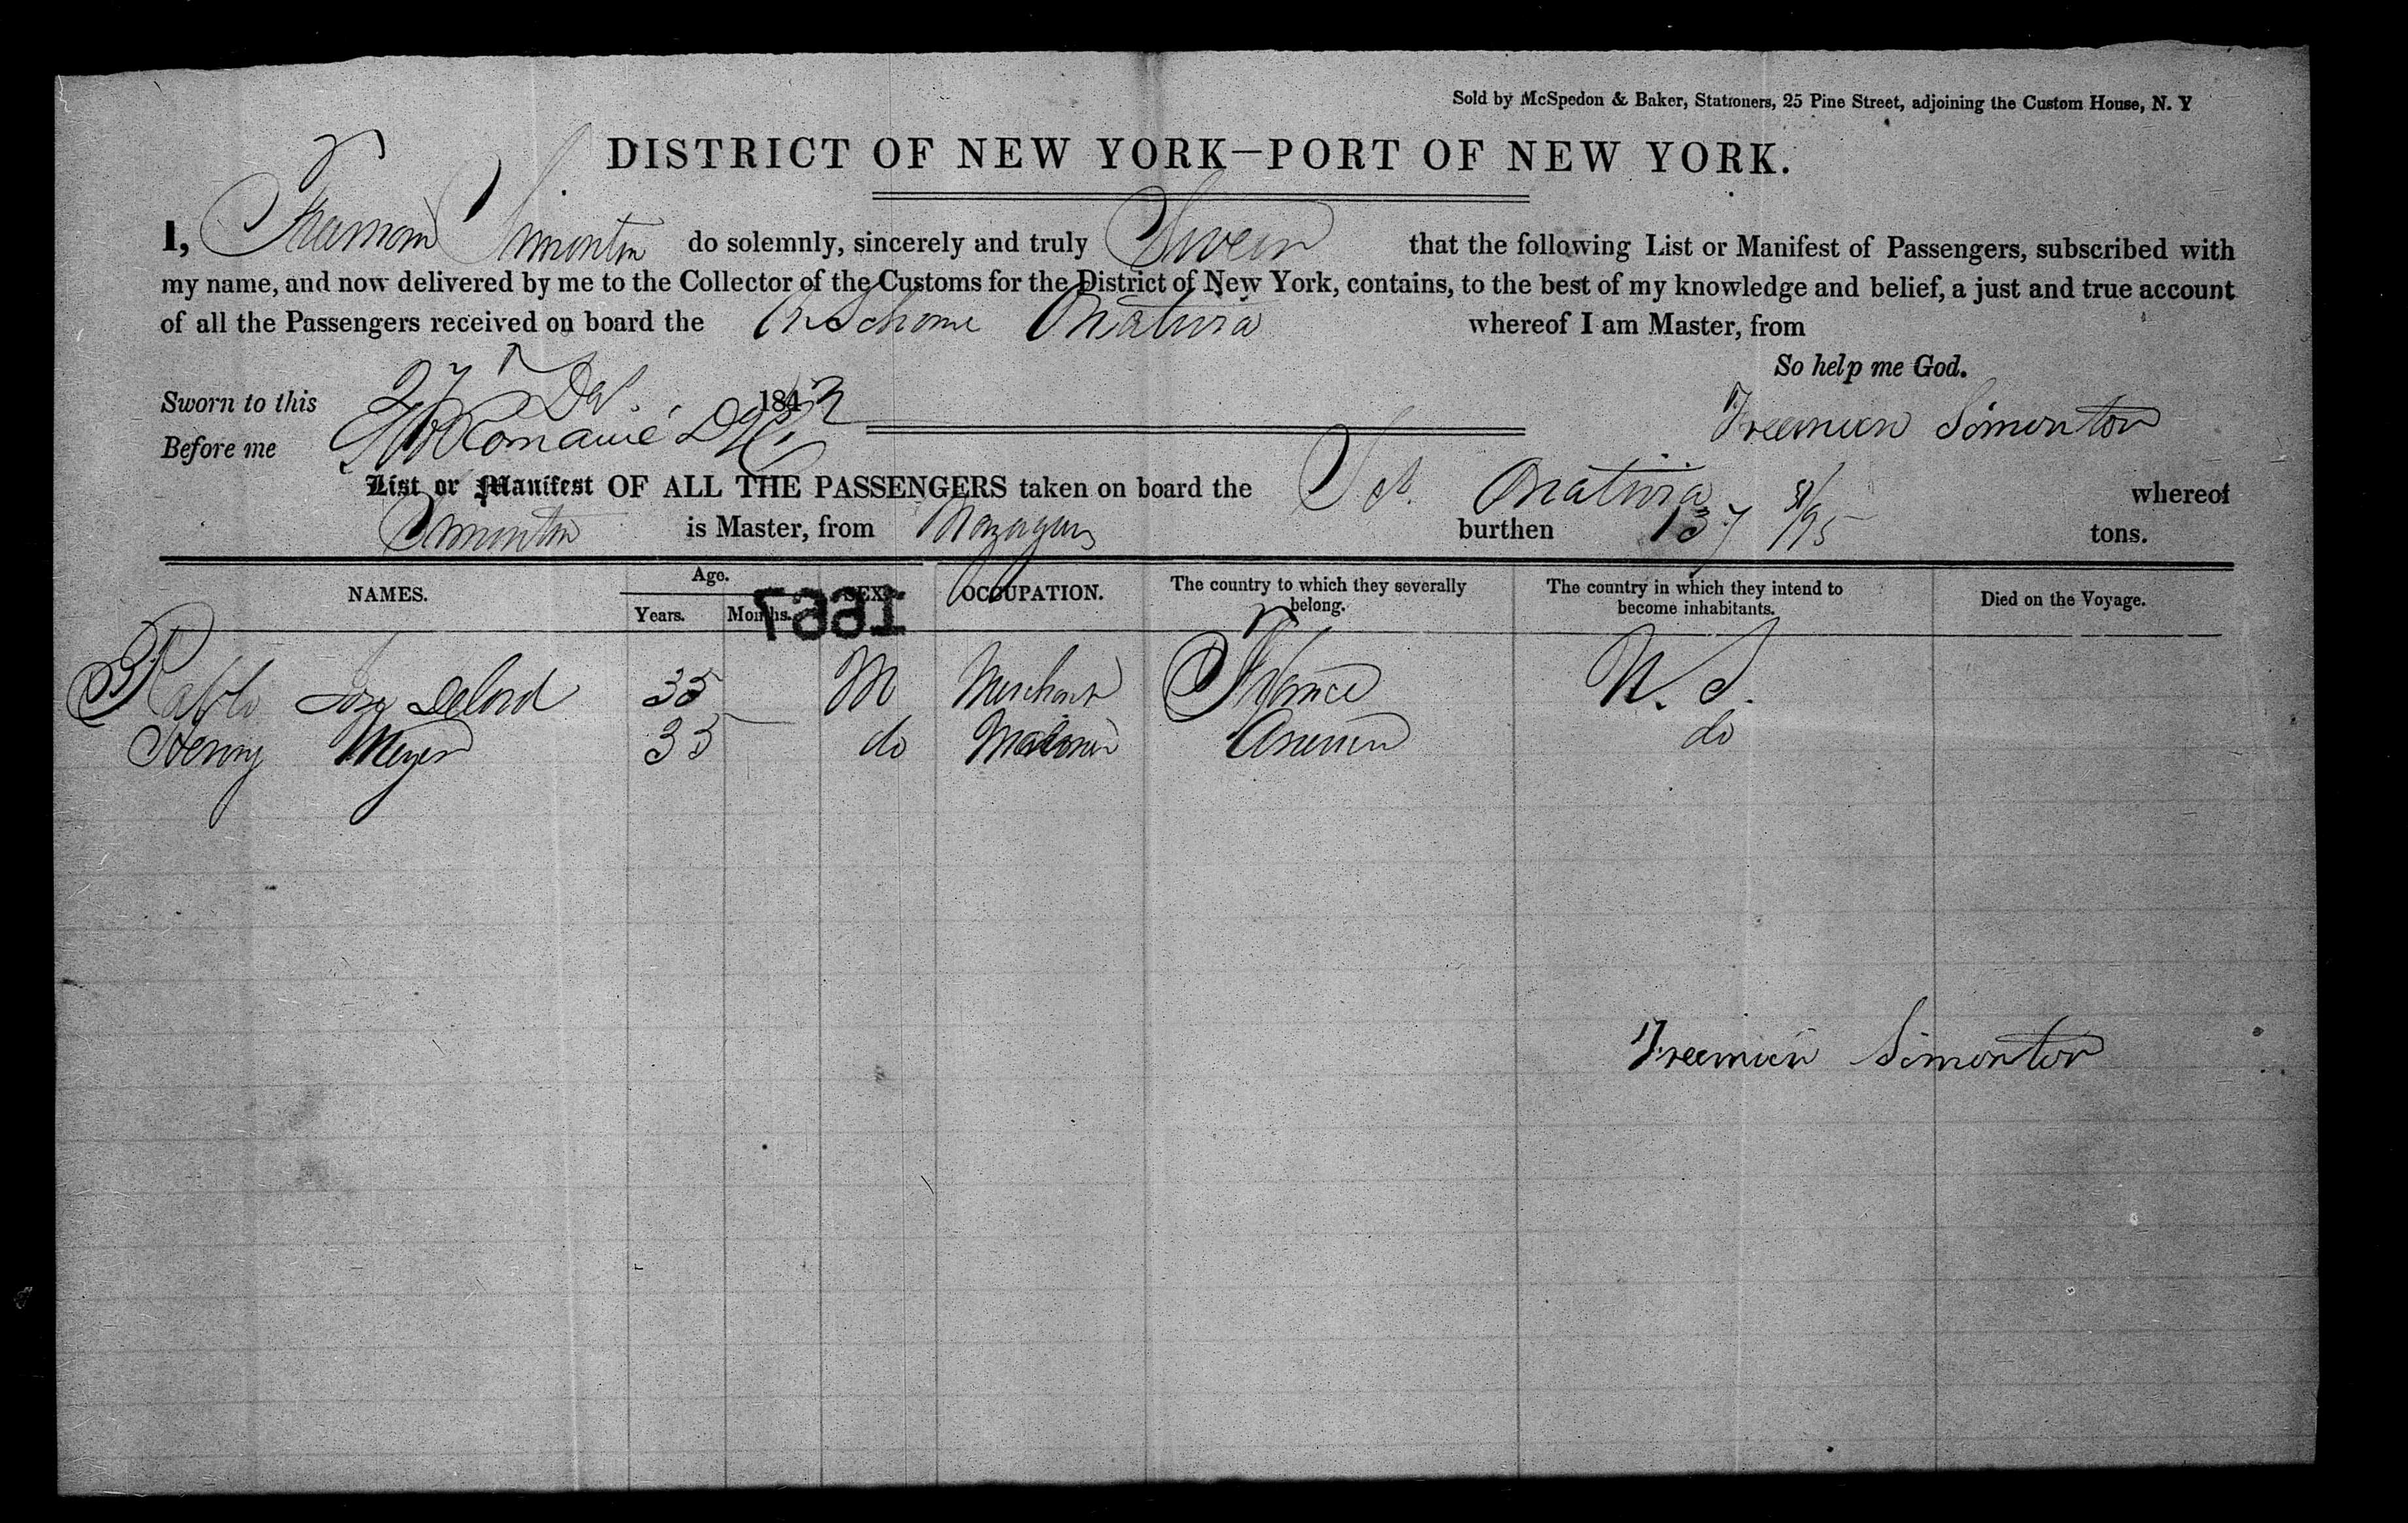 Sold by McSpedon & Baker, Stationers, 25 Pine Street, adjoining the Custom House, N. Y
DISTRICT OF NEW YORK—PORT OF NEW YORK.
I, Freeman Simonton do solemnly, sincerely and truly Swear that the following List or Manifest of Passengers, subscribed with
my name, and now delivered by me to the Collector of the Customs for the District of New York, contains, to the best of my knowledge and belief, a just and true account
of all the Passengers received on board the whereof I am Master, from
So help me God.
Sworn to this 27 1842
Freeman Simonton
Before me
List or Manifest OF ALL THE PASSENGERS taken on board the Sch. whereof
Simonton is Master, from burthen 137 /95 tons.
NAMES. Age. Years. Months. SEX OCCUPATION. The country to which they severally belong. The country in which they intend to become inhabitants. Died on the Voyage.
1661
Pablo Delord 35 M Merchant France U. S.
Henry Meyer 35 do Mariner do
Freeman Simonton